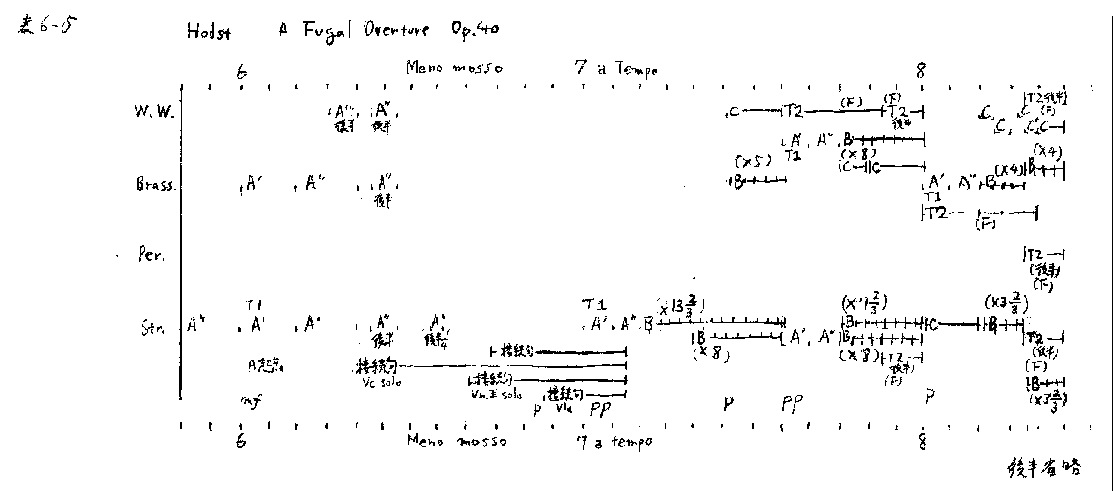 表6-5
Holst A Fugal Overture Op.40
6 Meno mosso 7 a Tempo 8
T2後半
W.W. A'' A'' C T2 (F) (F) T2 C C C (F)
後半 後半 後半 C, C, C
A' A'' B
(×5) T1 (×8) (×4) (×4)
C C
B B
Brass. A' A'' A'' A' A'' B
後半 T1
T2
(F)
Per. T2
(後半)
(F)
T1 T1 (×13 2/3) (×7 2/3) (×3 2/3)
Str. A'' A' A'' A'' A'' A' A'' B B C B
後半 後半 B A' A'' B T2
(×8) (×8) T2 (後半)
後半 (F)
(F) B
接続句 (×3 2/3)
接続句
Vc solo
接続句
Vn.Ⅱ solo
接続句
Vla
mf P PP P PP P
6 Meno mosso 7 a tempo 8
後半省略